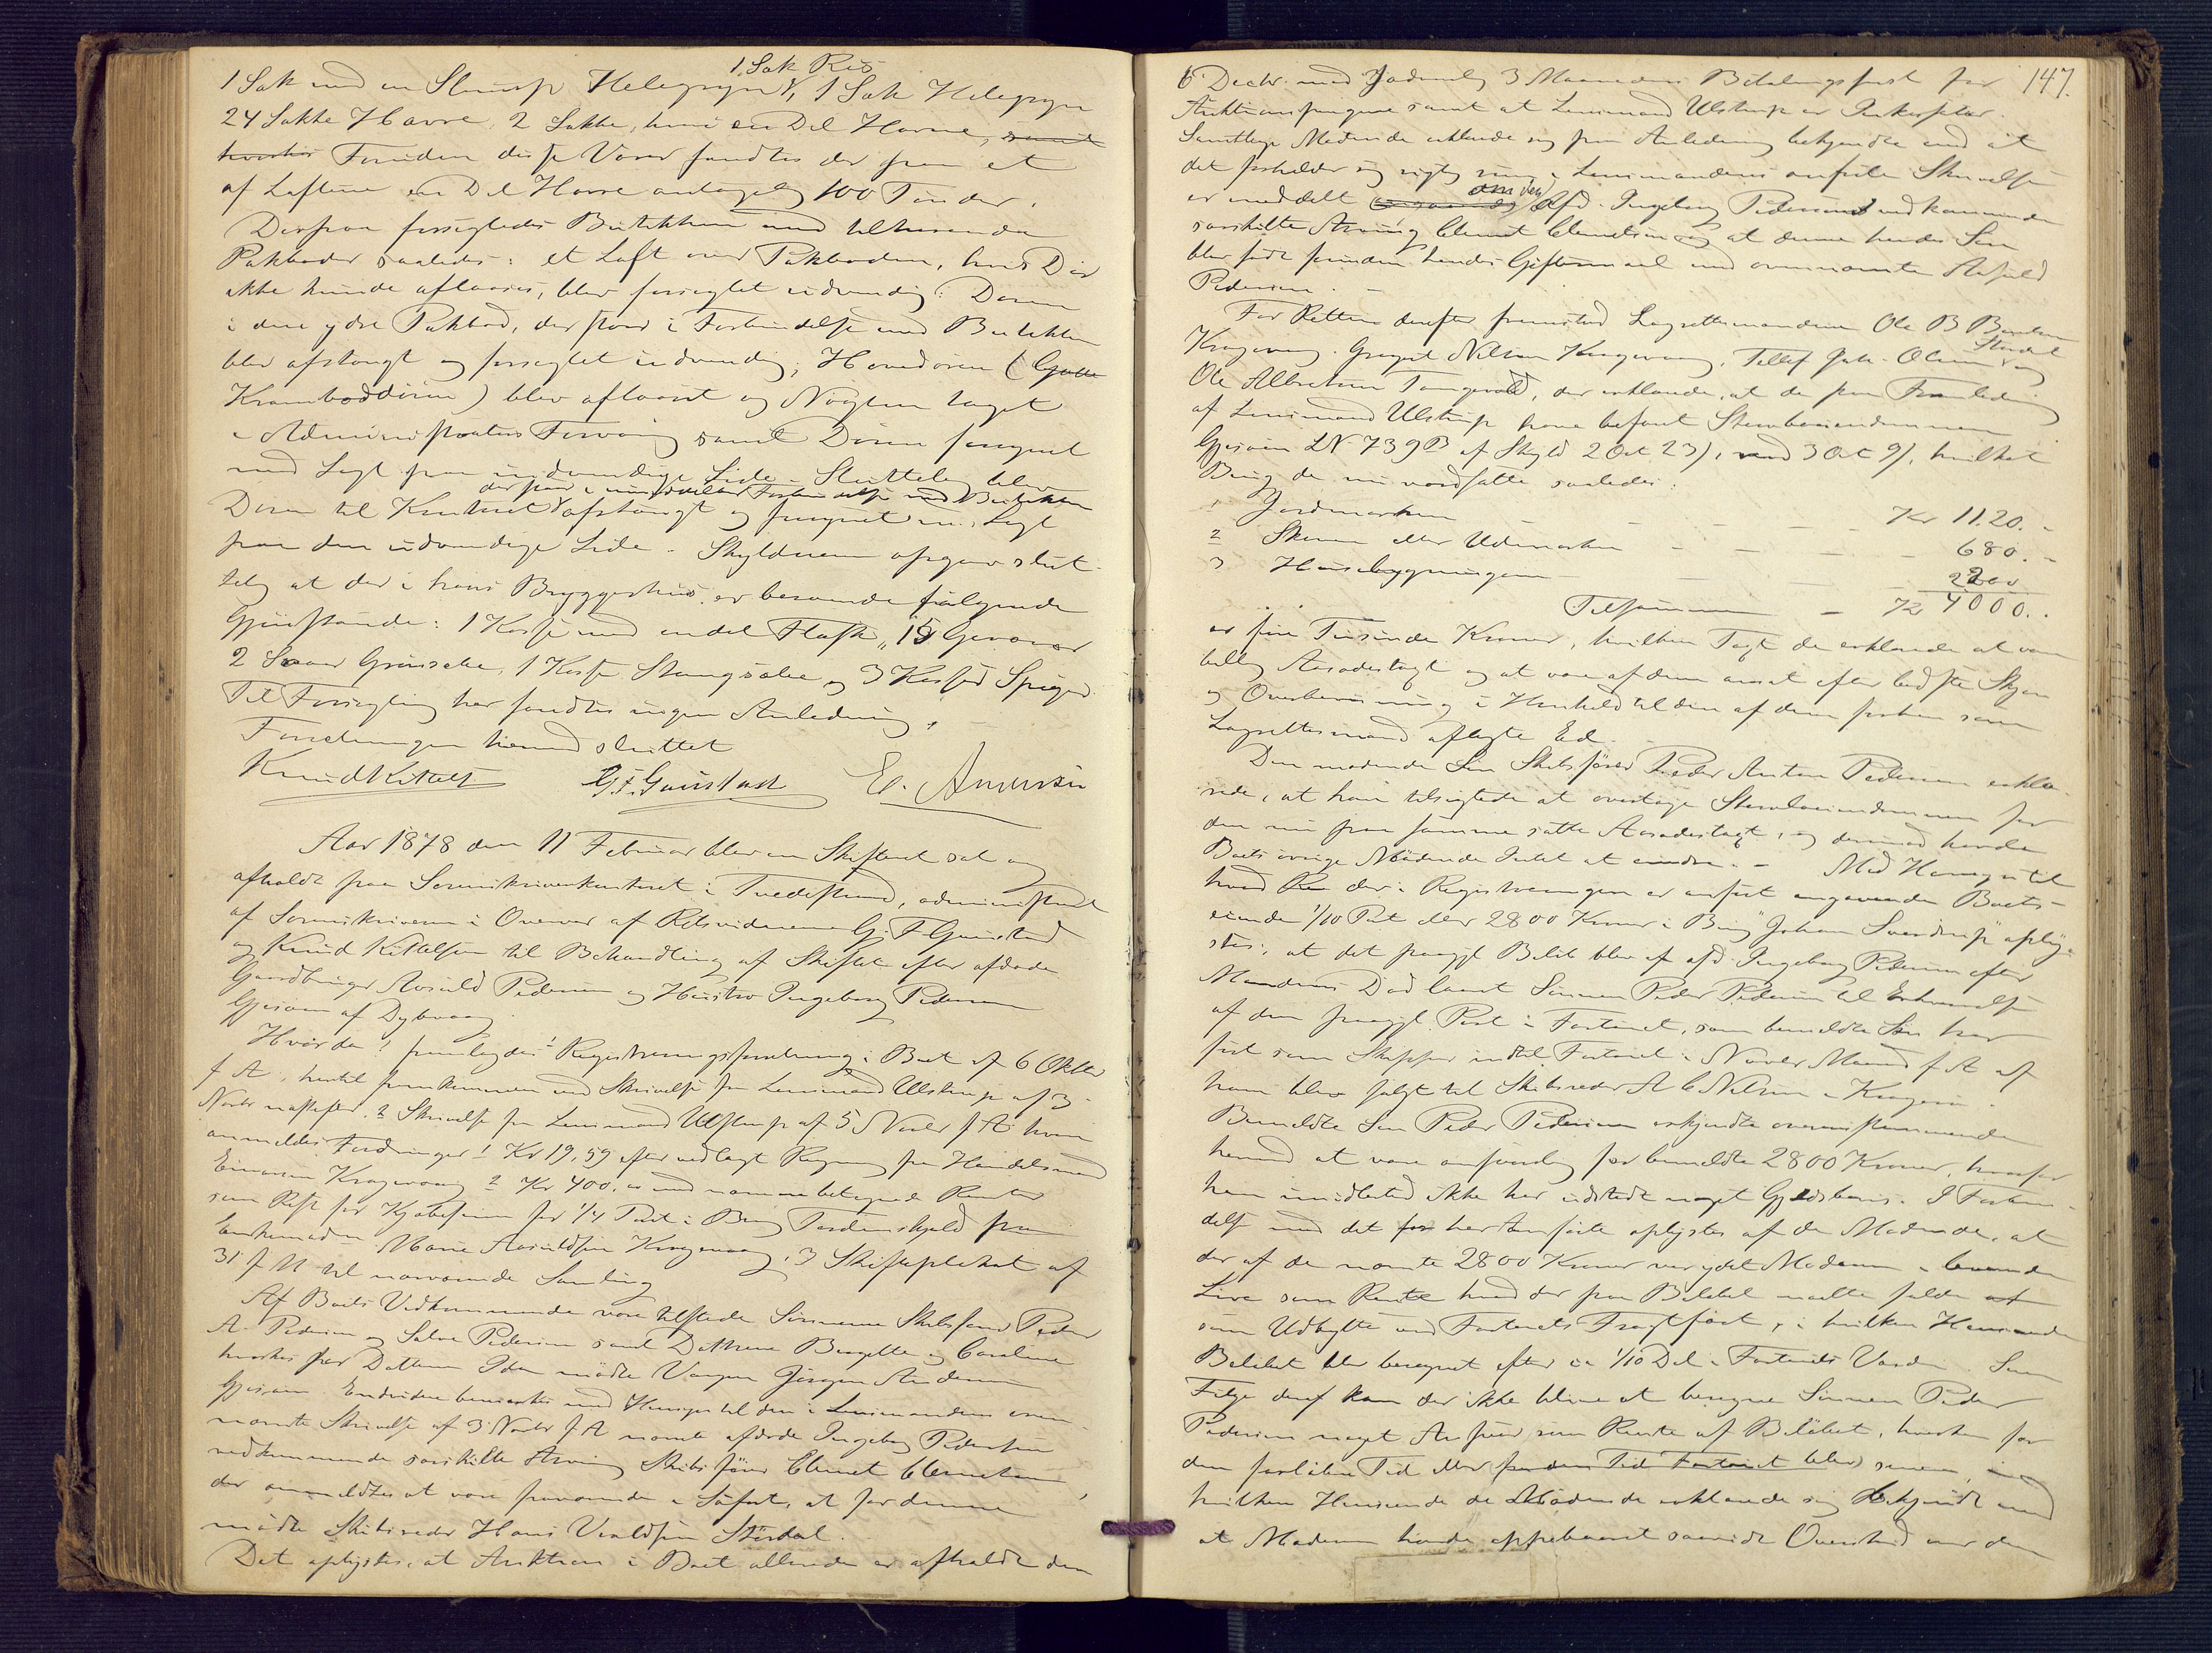 1 Sak Ris
1 Sak med en Slump Helegryn, 1 Sak Helegryn
24 Sække Havre, 2 Sække, hvori en Del Havre, samt
hvorhos Foruden disse Varer fandtes der paa et
af Lofterne en Del Havre antagelig 100 Tønder.
Derpaa forsegledes Butikken med tilhørende
Pakboder saaledes: et Loft over Pakboden, hvis Dør
ikke kunde aflaases, blev forseglet udvendig; Døren
i den ydre Pakbod, der staar i Forbindelse med Butikken
blev afstængt og forseglet indvendig; Hoveddøren (
Kramboddøren) blev aflaaset og Nøglen taget
i Administrators Forvaring samt Døren forsynet
med Segl paa udvendige Side. Sluttelig blev
der staar i umiddelbar Forbindelse med Butikken
Døren til Kontoret afstængt og forsynet m. Segl
paa den udvendige Side. Skyldneren opgav slut-
telig at der i hans Bryggerhus er beroende følgende
Gjenstande: 1 Kasse med endel Flask, 15 Geværer
2 Saaer Grønsæbe, 1 Kasse Stangsæbe og 3 Kasser Spiger
Til Forsegling her fandtes ingen Anledning.
Forretningen hermed sluttet
Knud Kittelsen G. F. Guistad El. Amundsen
Aar 1878 den 11 Februar blev en Skifteret sat og
afholdt paa Sorenskriverkontoret i Tvedestrand, administreret
af Sorenskriveren i Overvær af Retsvidnerne G. F. Guistad
og Knud Kittelsen til Behandling af Skiftet efter afdøde
Gaardbruger Aasuld Pedersen og Hustru Ingeborg Pedersen
Gjesøen af Dybvaag
Hvorda: fremlagdes 1 Registreringsforretning i Boet af 6 Oktbr
f A, hertil fremkommen med Skrivelse fra Lensmand Ulstrup af 3
Novbr næstefter. 2 Skrivelse fra Lensmand Ulstrup af 5 Novbr f A hvori
anmeldes Fordringer 1 Kr 19,59 efter vedlagt Regning fra Handelsmand
Einersen Kragevaag 2 Kr 400, med nærmere betegnede Renter
som Rest for Kjøbesum for 1/4 Part i Brig Tordenskjold fra
Enkemadam Maria Aasuldsen Kragevaag, 3 Skifteplakat af
31 f M til nærværende Samling
Af Boets Vedkommende vare tilstede Sønnerne Skibsfører Peder
A. Pedersen og Salve Pedersen samt Døttrene Birgitte og Caroline
hvorhos for Datteren Ida mødte Værgen Jørgen Andersen
Gjesøen. Endvidere bemærkes med Hensyn til den i Lensmandens oven
nævnte Skrivelse af 3 Novbr f A nævnte afdøde Ingeborg Pedersen
vedkommende særskilte Arving Skibsfører Clemet Clemetsen,
der anmeldtes at være fraværende i Søfart, at for denne
mødte Skibsreder Hans Stærdal.
Det oplystes, at Auktion i Boet allerede er afholdt den
147.
6 Decbr. med Jadvanlig 3 Maaneders Betalingsfrist for
Auktionspengene samt at Lensmand Ulstrup er Inkassator.
Samtlige Mødende erklærede sig paa Anledning bekjendte med at
det forholder sig rigtig som i Lensmandens anførte Skrivelse
er meddelt om den Afd. Ingeborg Pedersen vedkommende
særskilte Arving Clemet Clemetsen og at denne hendes Søn
blev født forinden hendes Giftermaal med ovennævnte Aasuld
Pedersen.
For Retten derefter fremstod Lagrettesmændene Ole B Berntsen
Kragevaag, Gregert Nilsen Kragevaag, Tellef Jak. Olsen Stærdal og
Ole Albretsen Tangevald, der erklærede, at de paa Foranledning
af Lensmand Ulstrup have befaret Stervboeiendommen
Gjesøen LN 739B af Skyld 2 Ort 23, med 3 Ort 9, hvilket
Brug de nu værdsatte saaledes:
1 Jordmarken Kr 1120. -
2 Skoven eller Udmarken 680. -
3 Husebygningerne 2200
Tilsammen Kr 4000.
er fire Tusinde Kroner, hvilken Taxt de erklærede at være
billig Aasædestaxt og at være af dem ansat efter bedste Skjøn
og Overbevisning i Henhold til den af dem forhen som
Lagrettesmænd aflagte Ed.
Den mødende Søn Skibsfører Peder Anton Pedersen erklæ-
rede, at han tilsigtede at overtage Stervboeiendommen for
den nu paa samme satte Aasædestaxt, og dermod havde
Boets øvrige Mødende Intet at erindre. - Med Hensyn til
hvad der i Registreringen er anført angaaende Boets
eiende 1/10 Part eller 2800 Kroner i Brig "Johan Sverdrup" oply-
stes, at det paagj. Beløb blev af afd. Ingeborg Pedersen efter
Mandens Død laant Sønnen Peder Pedersen til Erhvervelse
af den paagj. Part i Fartøiet, som bemeldte Søn har
ført som Skipper indtil Fartøiet i Novbr Maaned f A af
ham blev solgt til Skibsreder A C Nilsen i Kragerø.
Bemeldte Søn Peder Pedersen erkjendte overensstemmende
hermed at være ansvarlig for bemeldte 2800 Kroner, hvorfor
han imidlertid ikke har udstedt noget Gjeldsbevis. I Forbin-
delse med det for her anførte oplystes af de Mødende, at
der af de nævnte 2800 Kroner var ydet Moderen i levende
Live som Rente hvad der paa Beløbet maatte falde
som Udbytte ved Fartøiets Fragtfart, i hvilken Henseende
Beløbet blev beregnet efter 1/10 Del i Fartøiets Værdi. Som
Følge deraf kan der ikke blive at beregne Sønnen Peder
Pedersen noget Ansvar som Rente af Beløbet, hverken for
den forløbne Tid eller for den Tid Fartøiet blev senere, i
hvilken Henseende de Mødende erklærede sig bekjendt med
at Moderen havde oppebaaret saavidt Overskud over den